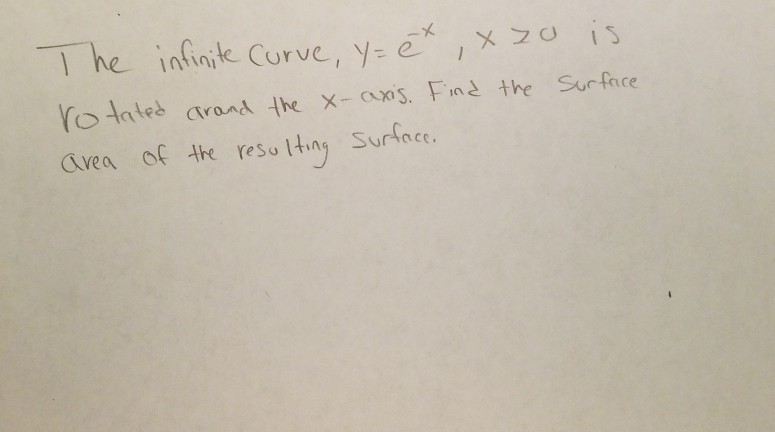 The infinite curve, y = e^-x, x ≥ 0 is
rotated around the x-axis. Find the surface
area of the resulting surface.